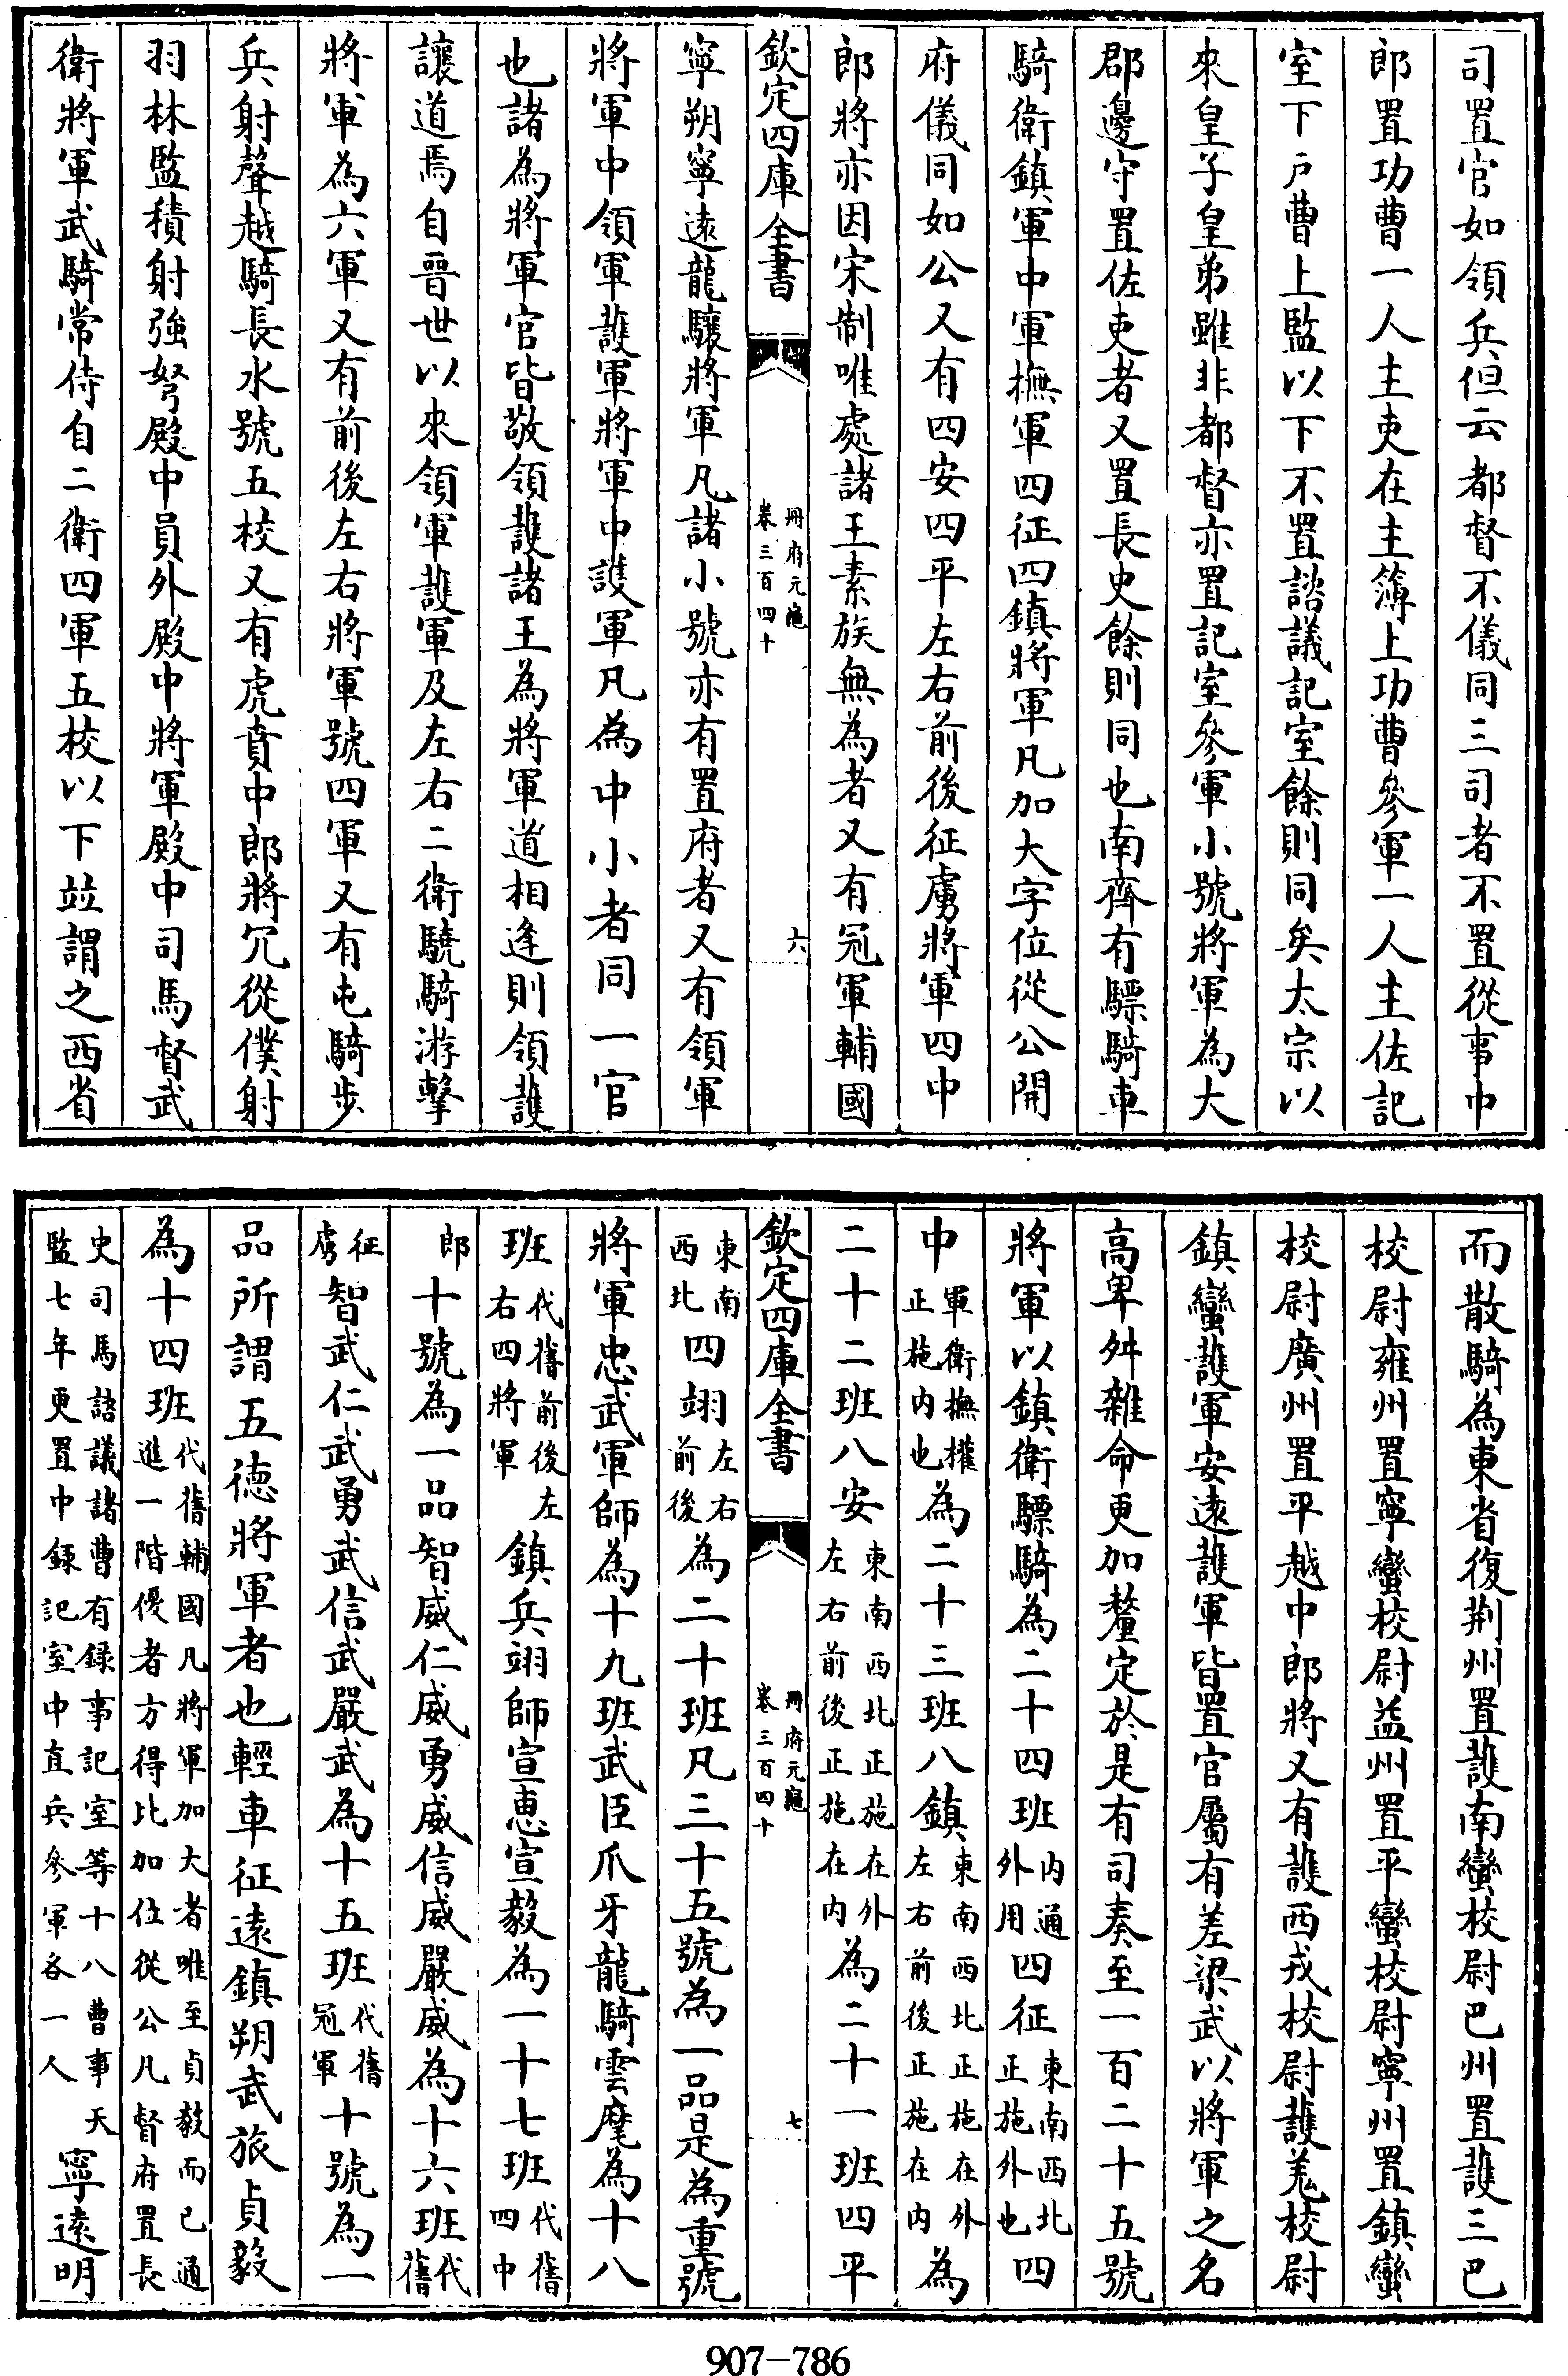 司置官如領兵但云都督不儀同三司者不置從事中
郎置功曹一人主吏在主簿上功曹參軍一人主佐記
室下戶曹上監以下不置諮議記室餘則同矣太宗以
來皇子皇弟雖非都督亦置記室參軍小號將軍為大
郡邊守置佐吏者又置長史餘則同也南齊有驃騎車
騎衛鎮軍中軍撫軍四征四鎮將軍凡加大字位從公開
府儀同如公又有四安四平左右前後征虜將軍四中
郎將亦因宋制唯處諸王素族無為者又有冠軍輔國
欽定四庫全書
冊府元龜
卷三百四十
六
寧朔寧遠龍驤將軍凡諸小號亦有置府者又有領軍
將軍中領軍護軍將軍中護軍凡為中小者同一官
也諸為將軍官皆敬領護諸王為將軍道相逢則領護
讓道焉自晉世以來領軍護軍及左右二衛驍騎游擊
將軍為六軍又有前後左右將軍號四軍又有屯騎步
兵射聲越騎長水號五校又有虎賁中郎將冗從僕射
羽林監積射強弩殿中員外殿中將軍殿中司馬督武
衛將軍武騎常侍自二衛四軍五校以下竝謂之西省
而散騎為東省復荆州置護南蠻校尉巴州置護三巴
校尉雍州置寧蠻校尉益州置平蠻校尉寧州置鎮蠻
校尉廣州置平越中郎將又有護西戎校尉護羗校尉
鎮蠻護軍安遠護軍皆置官屬有差梁武以將軍之名
高卑舛雜命更加釐定於是有司奏至一百二十五號
將軍以鎮衛驃騎為二十四班内通外用四征東南西北正施外也四
中軍衛撫權正施内也為二十三班八鎮東南西北正施在外左右前後正施在内為
二十二班八安東南西北正施在外左右前後正施在内為二十一班四平
欽定四庫全書
冊府元龜
卷三百四十
七
東南西北四翊左右前後為二十班凡三十五號為一品是為重號
將軍忠武軍師為十九班武臣爪牙龍騎雲麾為十八
班代舊前後左右四將軍鎮兵翊師宣惠宣毅為一十七班代舊四中
郎十號為一品智威仁威勇威信威嚴威為十六班代舊
征虜智武仁武勇武信武嚴武為十五班代舊冠軍十號為一
品所謂五德將軍者也輕車征遠鎮朔武旅貞毅
為十四班代舊輔國凡將軍加大者唯至貞毅而已通進一階優者方得比加位從公凡督府置長
史司馬諮議諸曹有錄事記室等十八曹事天監七年更置中錄記室中直兵參軍各一人寧遠明
907-786